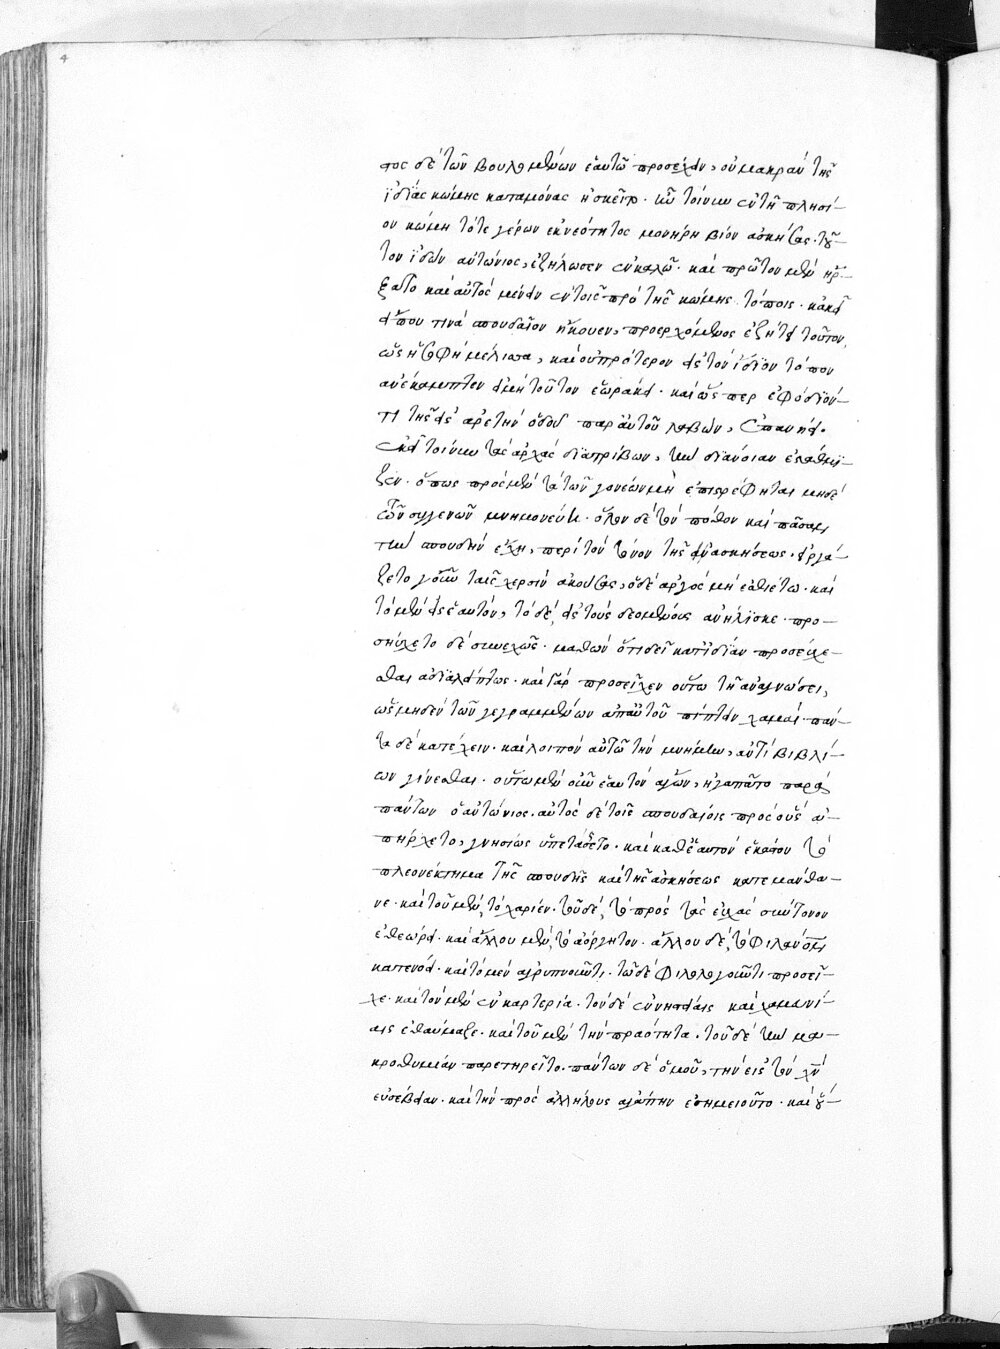 4
στος δὲ τῶν βουλομένων ἑαυτῶ προσέχειν, οὐ μακρὰν τῆς
ἰδίας κώμης καταμόνας ἠσκεῖτο· ἦν τοίνυν ἐν τῆ πλησί–
ον κώμη τότε γέρων ἐκ νεότητος μονήρη βίον ἀσκήσας· τοῦ–
τον ἰδὼν ἀντώνιος, ἐζήλωσεν ἐν καλῶ· καὶ πρῶτον μὲν ἤρ–
ξατο καὶ αὐτὸς μένειν ἐν τοῖς πρὸ τῆς κώμης τόποις· κἀκεῖ
εἴ που τινὰ σπουδαῖον ἤκουεν, προερχόμενος ἐζήτει τοῦτον,
ὡς ἡ σοφὴ μέλισσα, καὶ οὐ πρότερον εἰς τὸν ἴδιον τόπον
ἀνέκαμπτεν εἰ μὴ τοῦτον ἑωράκει· καὶ ὥσπερ ἐφόδιόν–
τι τῆς εἰς ἀρετὴν ὁδοῦ παρ αὐτοῦ λαβὼν, ἐπανήει·
ἐκεῖ τοίνυν τὰς ἀρχὰς διατρίβων, τὴν διάνοιαν ἐστάθμι–
ζεν· ὅπως πρὸς μὲν τὰ τῶν γονέων μὴ ἐπιστρέφηται μηδὲ
τῶν συγγενῶν μνημονεύη· ὅλον δὲ τὸν πόθον καὶ πᾶσαν
τὴν σπουδὴν ἔχη, περὶ τὸν τόνον τῆς ἀσκήσεως· εἰργά–
ζετο γοῦν ταῖς χερσὶν ἀκούσας, ὁ δὲ ἀργὸς μὴ ἐσθιέτω· καὶ
τὸ μὲν εἰς ἑαυτὸν, τὸ δὲ, εἰς τοὺς δεομένους ἀνήλισκε· προ–
σηύχετο δὲ συνεχῶς· μαθὼν ὅτι δεῖ κατ ἰδίαν προσεύχε–
σθαι ἀδιαλείπτως· καὶ γὰρ προσεῖχεν οὕτω τῆ ἀναγνώσει,
ὡς μηδὲν τῶν γεγραμμένων ἀπ αὐτοῦ πίπτειν χαμαὶ· πάν–
τα δὲ κατέχειν· καὶ λοιπὸν αὐτῶ τὴν μνήμην, ἀντὶ βιβλί–
ων γίνεσθαι· οὕτω μὲν οὖν ἑαυτὸν ἄγων, ἠγαπᾶτο παρὰ
πάντων ὁ ἀντώνιος· αὐτὸς δὲ τοῖς σπουδαίοις πρὸς οὓς ἀ–
πήρχετο, γνησίως ὑπετάσσετο· καὶ καθ ἑαυτὸν ἑκάστου τὸ
πλεονέκτημα τῆς σπουδῆς καὶ τῆς ἀσκήσεως κατεμάνθα–
νε· καὶ τοῦ μὲν, τὸ χαρίεν· τοῦ δὲ, τὸ πρὸς τὰς εὐχὰς σύντονον
ἐθεώρει· καὶ ἄλλου μὲν, τὸ ἀόργητον· ἄλλου δὲ, τὸ φιλάνον
κατενόει· καὶ τῶ μὲν ἀγρυπνοῦντι· τῶ δὲ φιλολογοῦντι προσεῖ–
χε· καὶ τὸν μὲν ἐν καρτερία· τὸν δὲ ἐν νηστείαις καὶ χαμευνί–
αις ἐθαύμαζε· καὶ τοῦ μὲν τὴν πραότητα· τοῦ δὲ τὴν μα–
κροθυμίαν παρετηρεῖτο· πάντων δὲ ὁμοῦ, τὴν εἰς τὸν χν
εὐσέβειαν· καὶ τὴν πρὸς ἀλλήλους ἀγάπην ἐσημειοῦτο· καὶ οὕ–